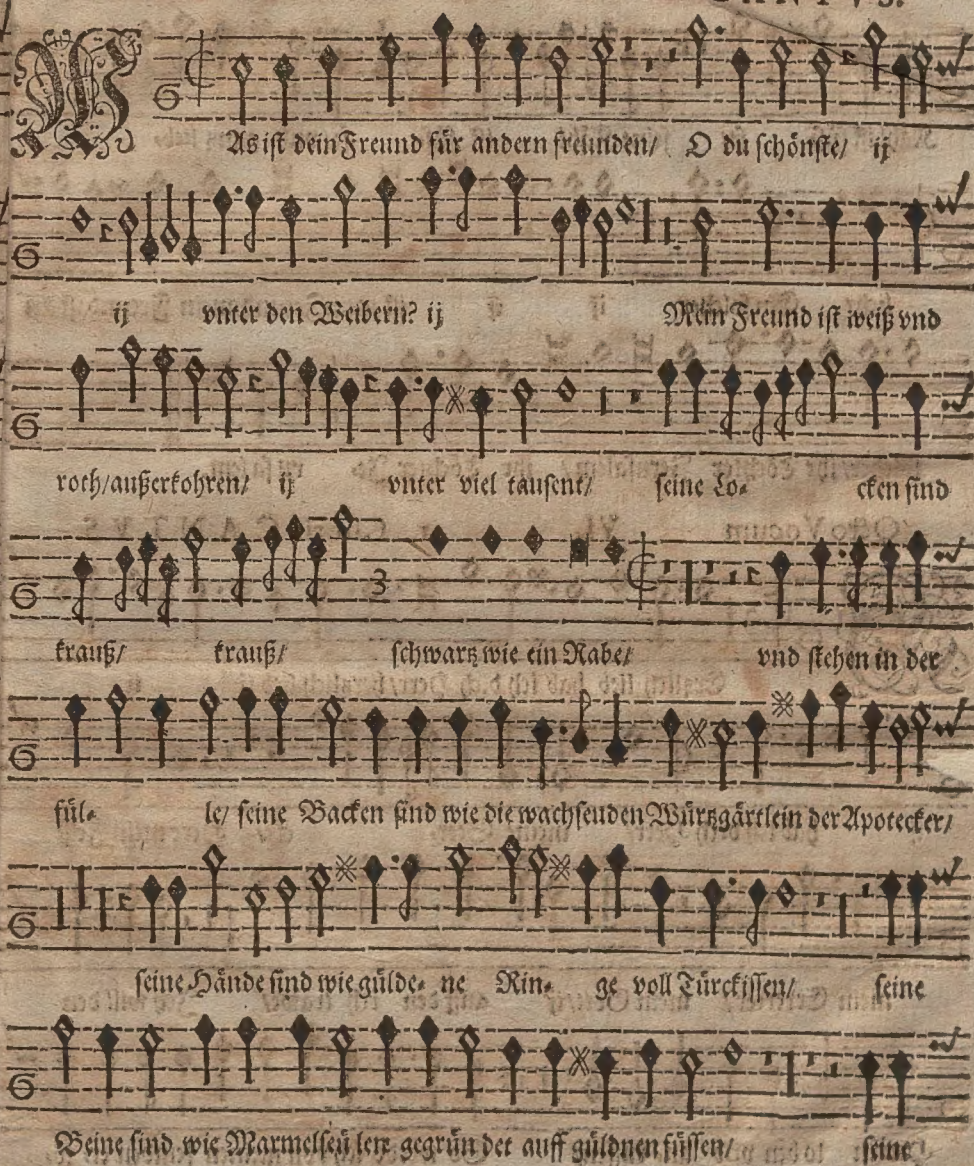 CANTVS.
WAs ist dein Freund für andern freunden/ O du schönste/ ij
ij vnter den Weibern? ij Mein Freund ist weiß vnd
roth/außerkohren/ ij vnter viel tausent/ seine Lo- cken sind
krauß/ krauß/ schwartz wie ein Rabe/ vnd stehen in der
fül- le/ seine Backen sind wie die wachsenden Würtzgärtlein der Apotecker/
seine Hände sind wie gülde- ne Rin- ge voll Türckissen/ seine
Beine sind wie Marmelseulen gegründet auff güldnen füssen/ seine